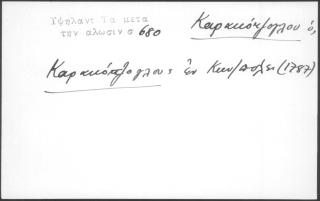 Ὑψηλαντ Τα μετα
την αλωσιν σ 680
Καρακιόζογλου ὁ,
Καρακιόζογλους ἐν Κων/πόλει (1787)